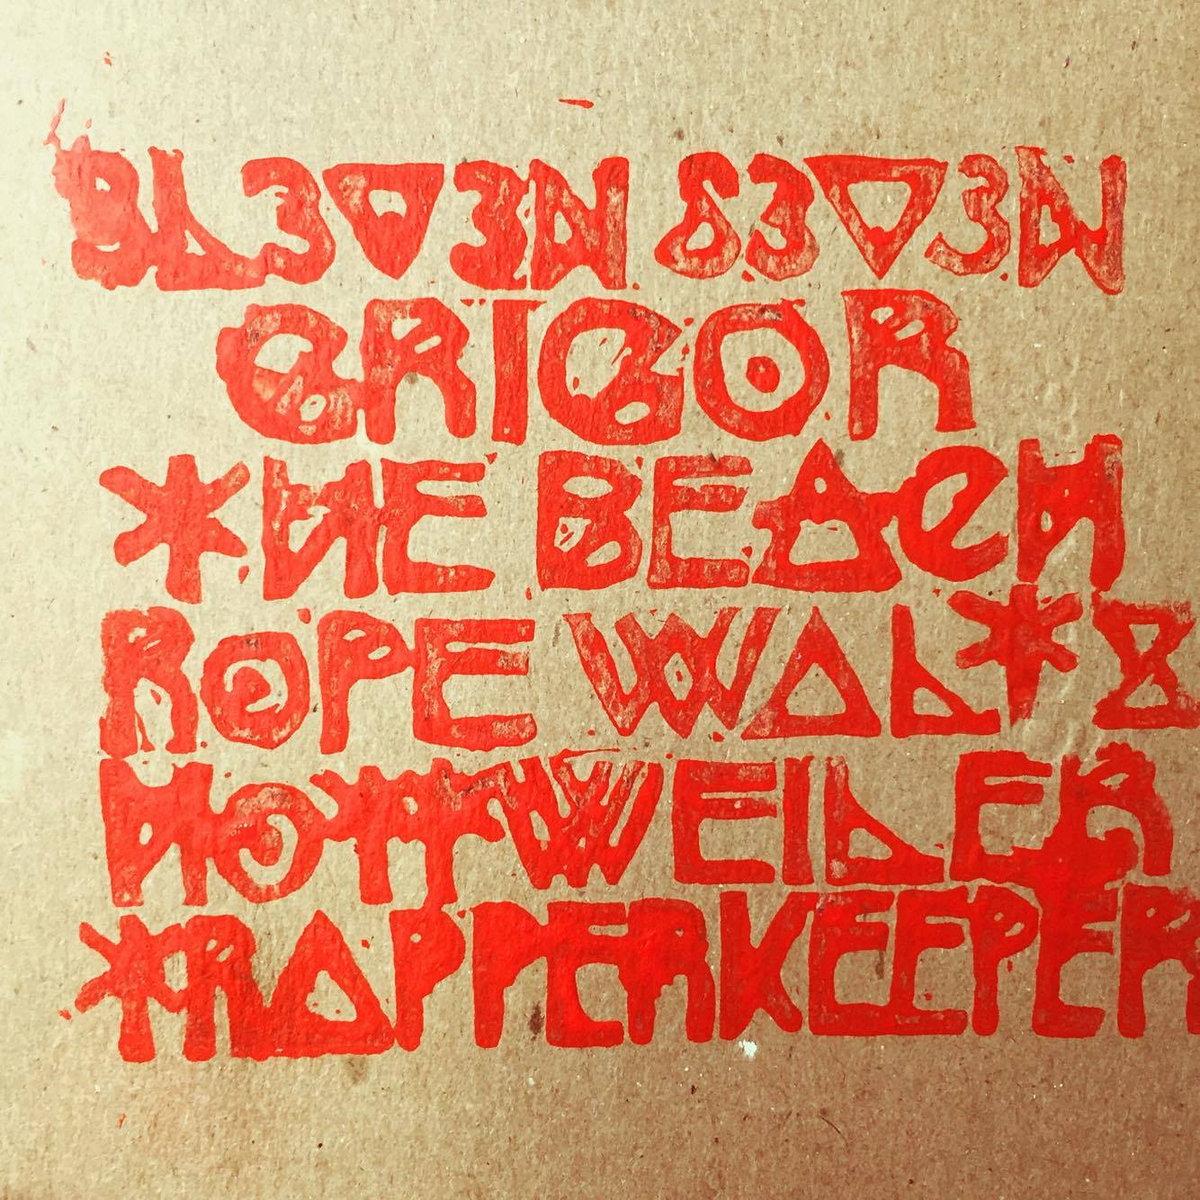 ELEVEN SEVEN
GRIGOR
THE BEACH
ROPE WALTZ
HOTTWEILER
TRAPPERKEEPER